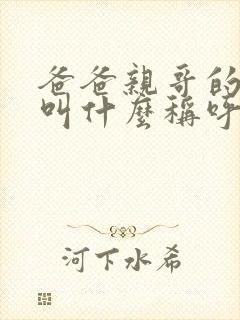 爸爸親哥的
叫什麼稱呼
河下水希